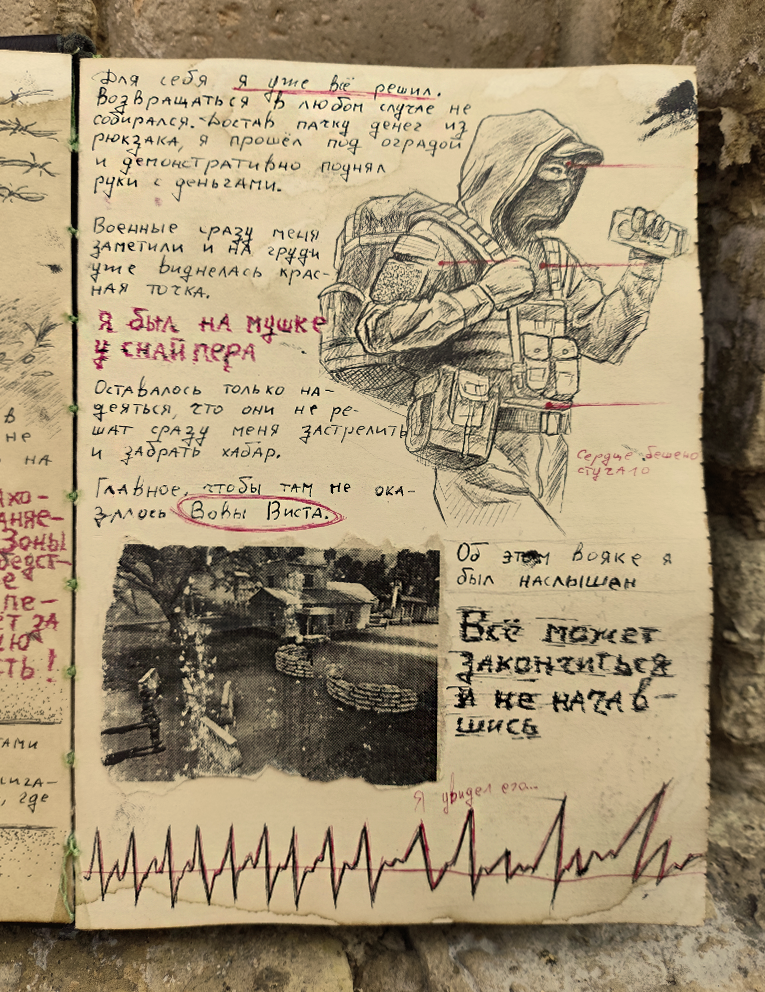 Для себя я уже всё решил.
Возвращаться в любом случае не
собирался. Достав пачку денег из
рюкзака, я прошёл под оградой
и демонстративно поднял
руки с деньгами.
Военные сразу меня
заметили и на груди
уже виднелась крас-
ная точка.
Я был на мушке
у снайпера
Оставалось только на-
деяться, что они не ре-
шат сразу меня застрелить
и забрать хабар.
Сердце бешено
стучало
Главное, чтобы там не ока-
залось Вовы Виста.
Об этом вояке я
был наслышен
Всё может
закончиться
и не начав-
шись
Я увидел его...
в
не
на
Зоны
е
пе-
ет за
сть!
тами
где